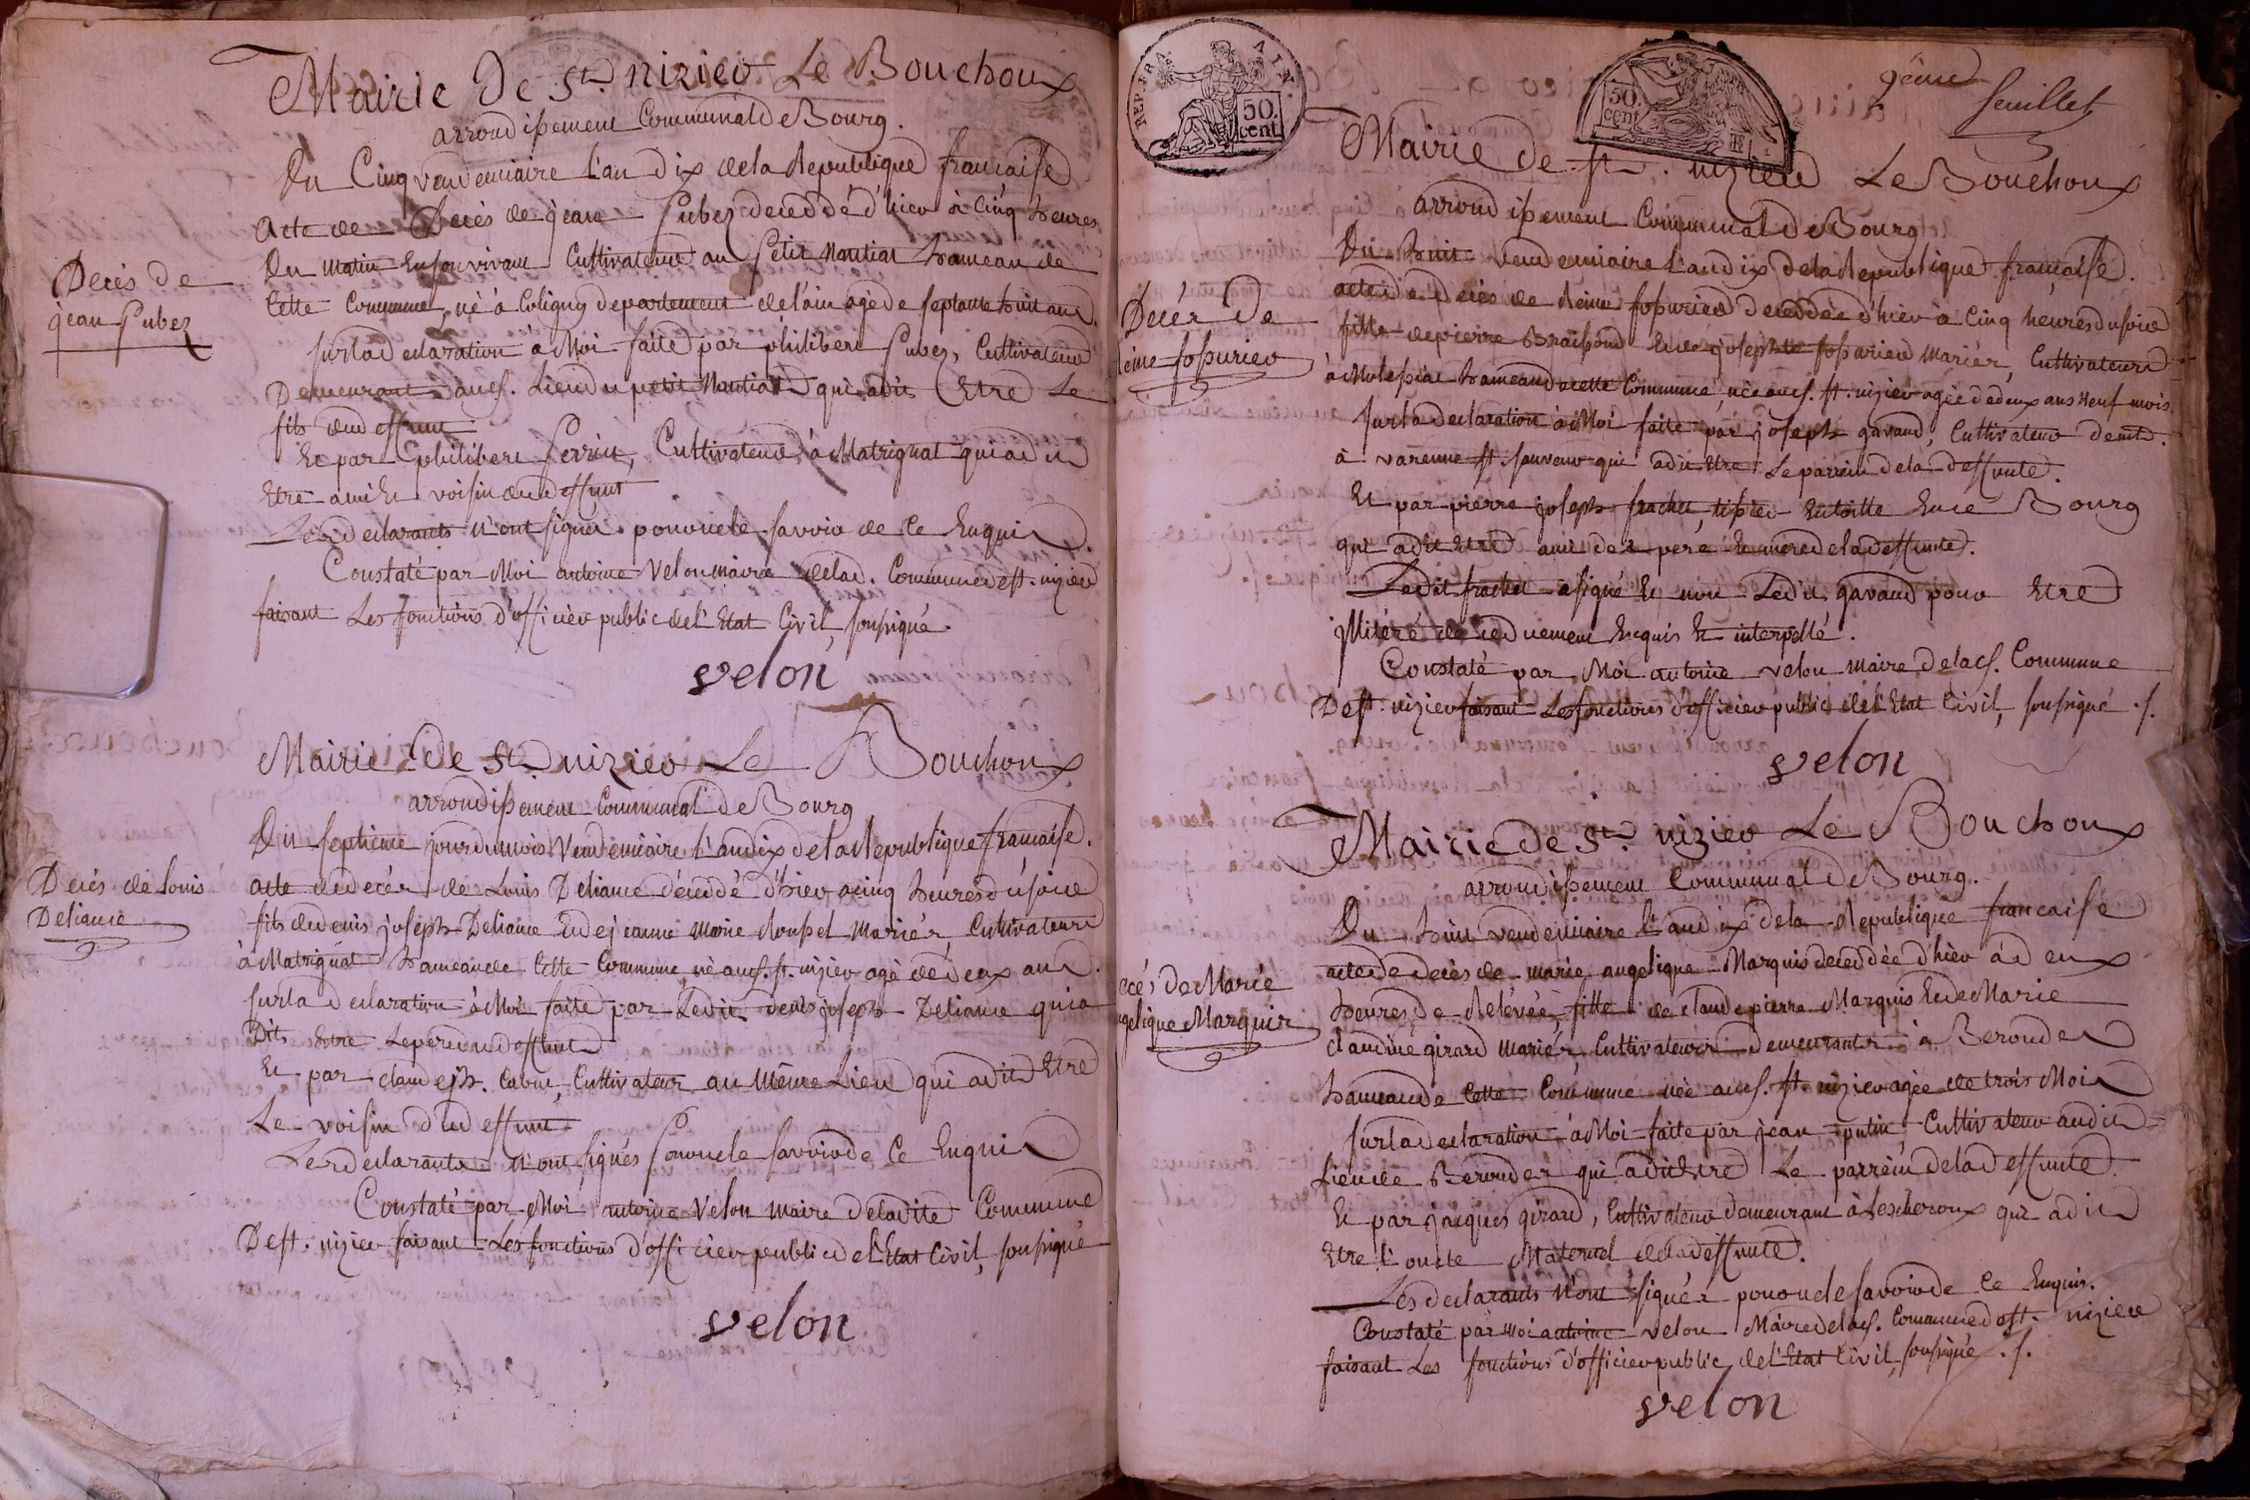 Mairie De St. nizier Le Bouchoux
arrondissement Communal de Bourg.
Du Cinq vendemiaire L'an dix de la Republique française
Acte de Décès de jean Pubez decedé d'hier à Cinq heures
Du matin En son vivant Cultivateur au Petit Montiat hameau de
Cette Commune, né à Coligny departement de l'ain agé de septante huit ans.
Decès de
jean Pubez
sur la declaration à Moi faite par philibert Pubez, Cultivateur
Demeurant aud. Lieu du petit Montiat qui a dit Etre Le
fils du deffunt
Et par philibert Perrin, Cultivateur à Matrignat qui a dit
Etre ami Et voisin du deffunt
Les declarants n'ont signer pour ne le savoir de ce Enquis.
Constaté par Moi antoine Velon maire de lad. Commune de st. nizier
faisant Les fonctions d'officier public de l'Etat Civil, soussigné.
velon
Mairie De St. nizier Le Bouchoux
arrondissement Communal de Bourg
Du septieme jour du mois Vendemiaire L'an dix de la Republique française.
Decés de Louis
Deliance
acte de decér de Louis Deliance décédé d'hier a cinq heures du soir
fils de denis joseph Deliance Et de jeanne marie Mariér, Cultivateurs
à Matrignat hameau de Cette Commune, né aud. st. nizier agé de deux ans.
sur la declaration à Moi faite par Ledit denis joseph Deliance qui a
Dit Etre Le pere du deffunt
Et par claude jph. Cultivateur au Même Lieu qui a dit Etre
Le voisin du deffunt
Les declarants n'ont signés pour ne le savoir de Ce Enquis
Constaté par Moi antoine Velon maire de la dite Commune
De st. nizier faisant Les fonctions d'officier public de l'Etat Civil, soussigné
velon
REP. FRA. 50. cent. A I N.
50. cent.
9eme
feuillet
Mairie de st. nizier Le Bouchoux
arrondissement Communal de Bourg
Du huit Vendemiaire L'an dix de la Republique française.
Decér De
reine fossurier
acte de decés de Reine fossurier decedée d'hier à Cinq heures du soir
fille de pierre Et de josephte fossurier Mariér, Cultivateurs
à Molessiat hameau de cette Commune, née aud. st. nizier agée de deux ans neuf mois.
sur la declaration à Moi faite par joseph gavand, Cultivateur demt.
à varenne st. sauveur qui a dit Etre Le parrein de la deffunte.
Et par pierre joseph frachet, tissier En toille En ce Bourg
qui a dit Etre ami des pere Et mere de la deffunte.
Ledit frachet a signé Et non Ledit gavand pour Etre
jlliteré de ce duement Enquis Et interpellé.
Constaté par Moi antoine velon maire de lad. Commune
De st. nizier faisant Les fonctions d'officier public de l'Etat Civil, soussigné ./.
velon
Mairie de St. nizier Le Bouchoux
arrondissement Communal de Bourg.
Du huit vendemiaire L'an dix de la Republique francaise
acte de decès de marie angelique Marquis decedée d'hier à deux
ecés de Marie
ngelique Marquir
heures de Relevée fille de claude pierre Marquis Et de Marie
claudine girard mariér, Cultivateurs demeurants à Berouder
hameau de Cette Commune née aud. st. nizier agée de trois Mois
sur la declaration à Moi faite par jean putin Cultivateur au dit
Lieu de Berouder qui a dit Etre Le parrein de la deffunte.
Et par jacques girard, Cultivateur demeurant à Lescheroux qui a dit
Etre l'oncle Maternel de la deffunte.
Les declarants n'ont signér pour ne le savoir de Ce Enquis.
Constaté par moi antoine velon Maire de lad. Commune de st. nizier
faisant Les fonctions d'officier public de l'Etat Civil, soussigné ./.
velon